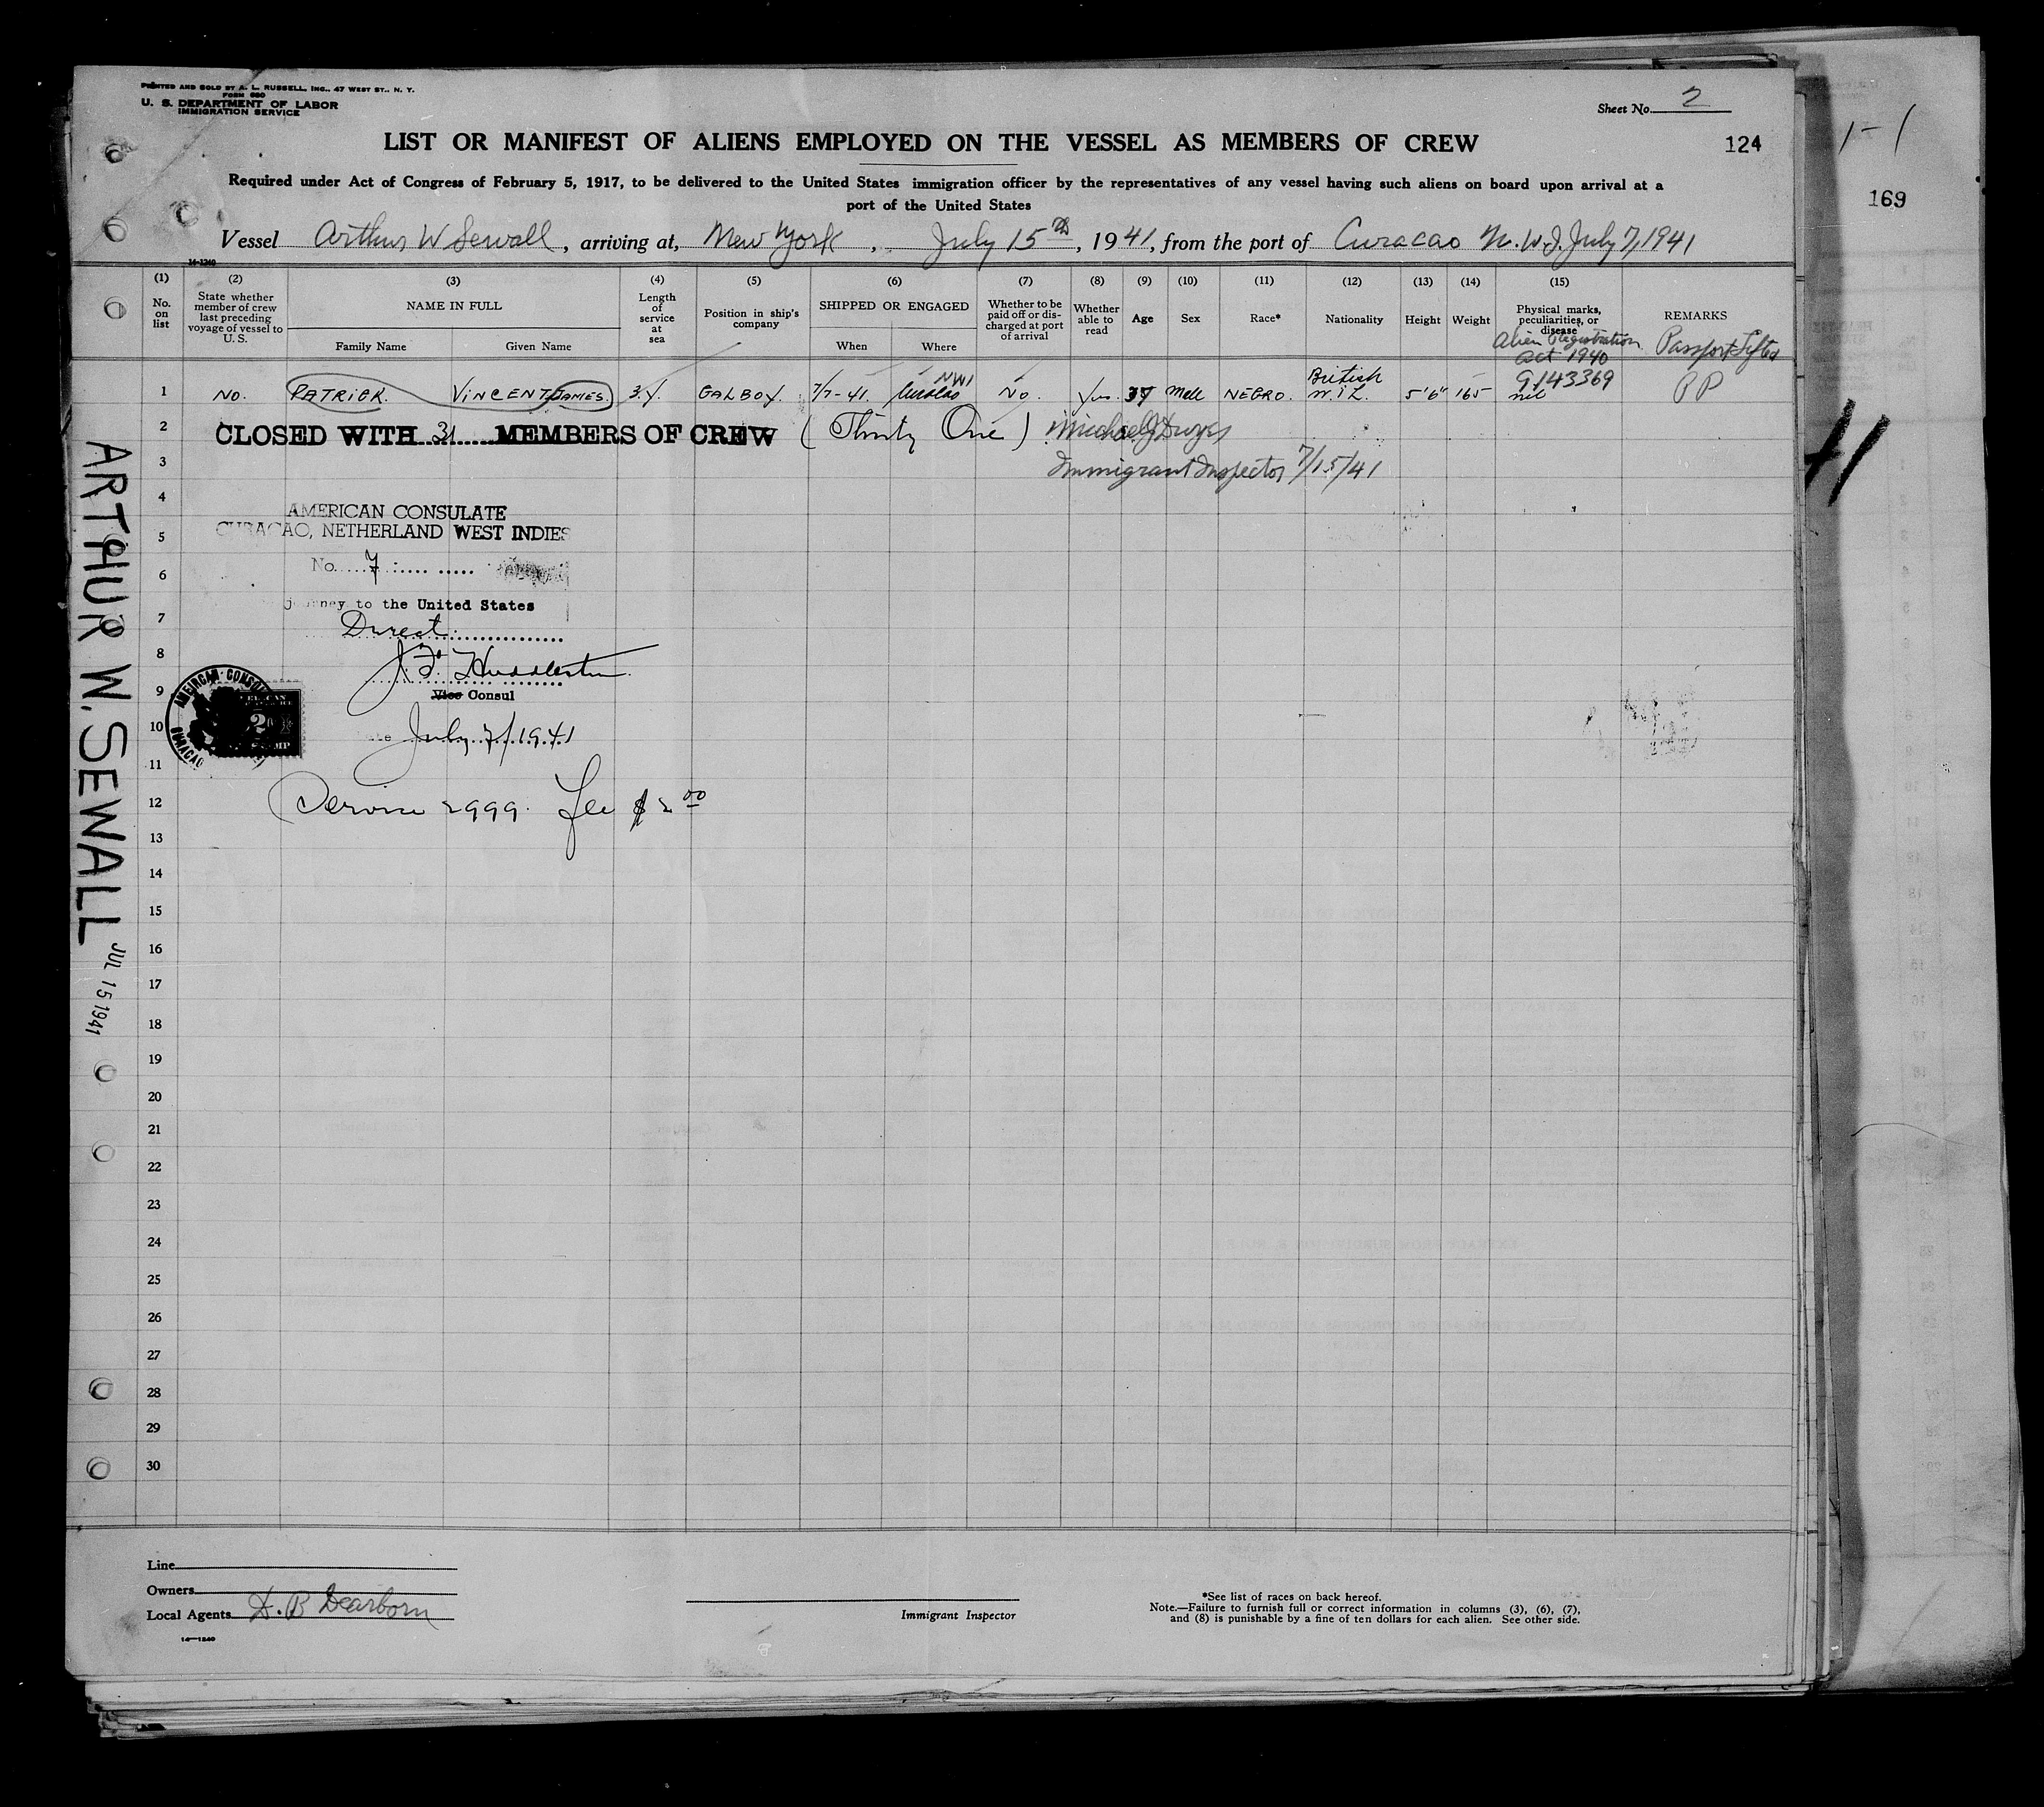 PRINTED AND SOLD BY A. L. RUSSELL, INC., 47 WEST ST., N. Y.
FORM 680
U. S. DEPARTMENT OF LABOR
IMMIGRATION SERVICE
Sheet No. 2
LIST OR MANIFEST OF ALIENS EMPLOYED ON THE VESSEL AS MEMBERS OF CREW
124
1-1
169
Required under Act of Congress of February 5, 1917, to be delivered to the United States immigration officer by the representatives of any vessel having such aliens on board upon arrival at a
port of the United States
Vessel Arthur W Sewall, arriving at, New York, July 15th, 1941, from the port of Curacao N.W.I. July 7, 1941
14-1240
(1) No. on list
(2) State whether member of crew last preceding voyage of vessel to U. S.
(3) NAME IN FULL Family Name Given Name
(4) Length of service at sea
(5) Position in ship's company
(6) SHIPPED OR ENGAGED When Where
(7) Whether to be paid off or discharged at port of arrival
(8) Whether able to read
(9) Age
(10) Sex
(11) Race*
(12) Nationality
(13) Height
(14) Weight
(15) Physical marks, peculiarities, or disease
Alien Registration Act 1940
REMARKS
Passport Lifted
1 NO. PATRICK. VINCENT JAMES. 3.Y. GALBOY. 7/7-41. Curacao NWI No. Yes. 37 Male NEGRO. British W.I. 5'6" 165 9143369 nil PP
2 CLOSED WITH 31 MEMBERS OF CREW (Thirty One) Michael J Dwyer
3 Immigrant Inspector 7/15/41
4 AMERICAN CONSULATE
5 CURACAO, NETHERLAND WEST INDIES
6 No. 7
Journey to the United States
7 Direct
8 J. F. Huddleston
9 Vice Consul
AMERICAN CONSUL
CURACAO
10 July 7/1941
11
12 Service 2999. Fee $2.00
13
14
15
16
17
18
19
20
21
22
23
24
25
26
27
28
29
30
ARTHUR W. SEWALL JUL 15 1941
41
Line
Owners
Local Agents D. B Dearborn
14—1240
Immigrant Inspector
*See list of races on back hereof.
Note.—Failure to furnish full or correct information in columns (3), (6), (7),
and (8) is punishable by a fine of ten dollars for each alien. See other side.